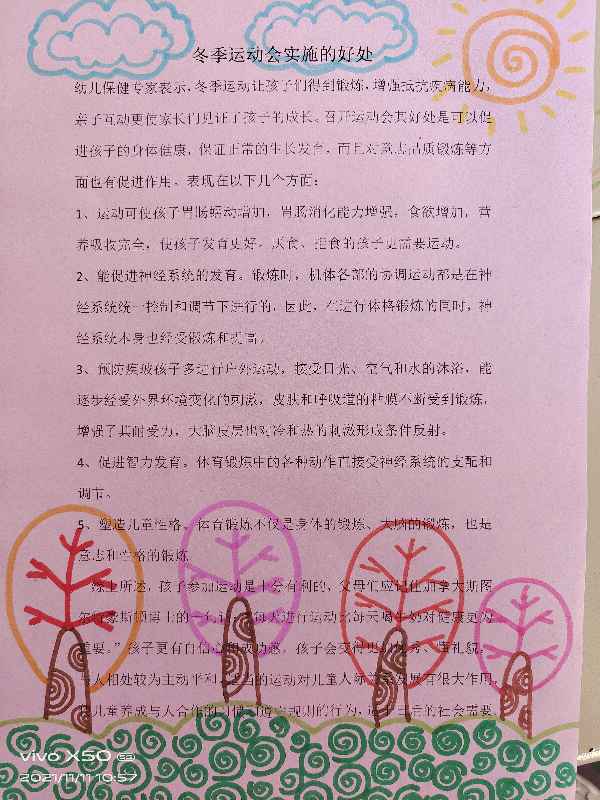 冬季运动会实施的好处
幼儿保健专家表示，冬季运动让孩子们得到锻炼，增强抵抗疾病能力，
亲子互动更使家长们见证了孩子的成长。召开运动会其好处是可以促
进孩子的身体健康，保证正常的生长发育，而且对意志品质锻炼等方
面也有促进作用。表现在以下几个方面：
1、运动可使孩子胃肠蠕动增加，胃肠消化能力增强，食欲增加，营
养吸收完全，使孩子发育更好。厌食、拒食的孩子更需要运动。
2、能促进神经系统的发育。锻炼时，机体各部的协调运动都是在神
经系统统一控制和调节下进行的，因此，在进行体格锻炼的同时，神
经系统本身也经受锻炼和提高。
3、预防疾玻孩子多进行户外运动，接受日光、空气和水的沐浴，能
逐步经受外界环境变化的刺激，皮肤和呼吸道的粘膜不断受到锻炼，
增强了其耐受力，大脑皮层也对冷和热的刺激形成条件反射。
4、促进智力发育。体育锻炼中的各种动作直接受神经系统的支配和
调节。
5、塑造儿童性格。体育锻炼不仅是身体的锻炼、大脑的锻炼，也是
意志和性格的锻炼
综上所述，孩子参加运动是十分有利的，父母们应记住加拿大斯图
尔特豪斯顿博士的一句话：每天进行运动比每天喝牛奶对健康更为
重要。”孩子更有自信心和成功感，孩子会变得更加优秀、懂礼貌，
与人相处较为主动平和。适当的运动对儿童人际关系发展有很大作用
儿童养成与人合作的习惯和遵守规则的行为，这是日后的社会需要
vivo X50 5G
2021/11/11 10:57